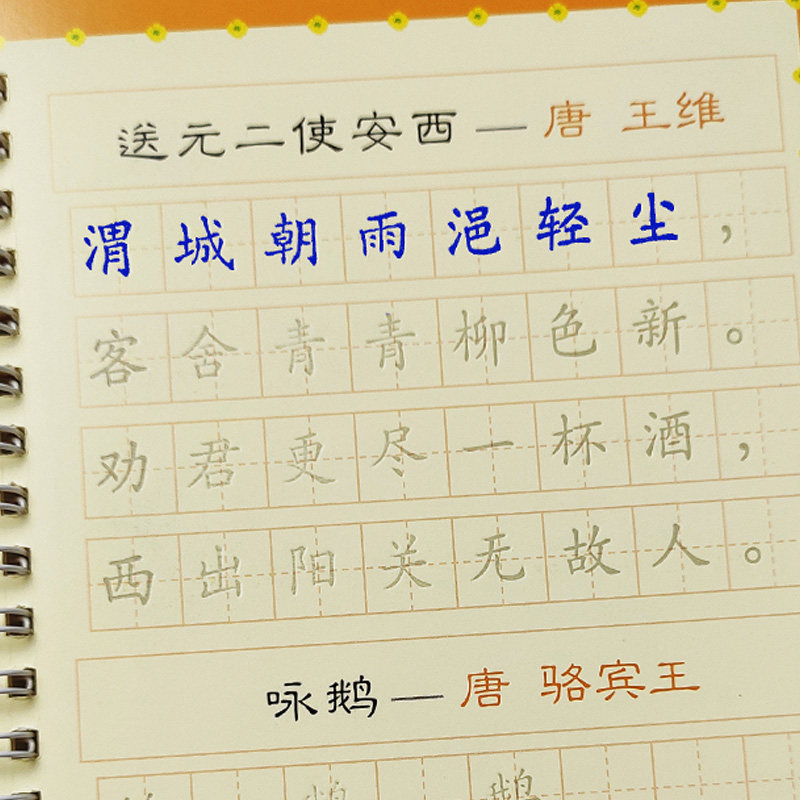 送元二使安西—唐 王维
渭城朝雨浥轻尘，
客舍青青柳色新。
劝君更尽一杯酒，
西出阳关无故人。
咏鹅—唐 骆宾王
鹅 鹅